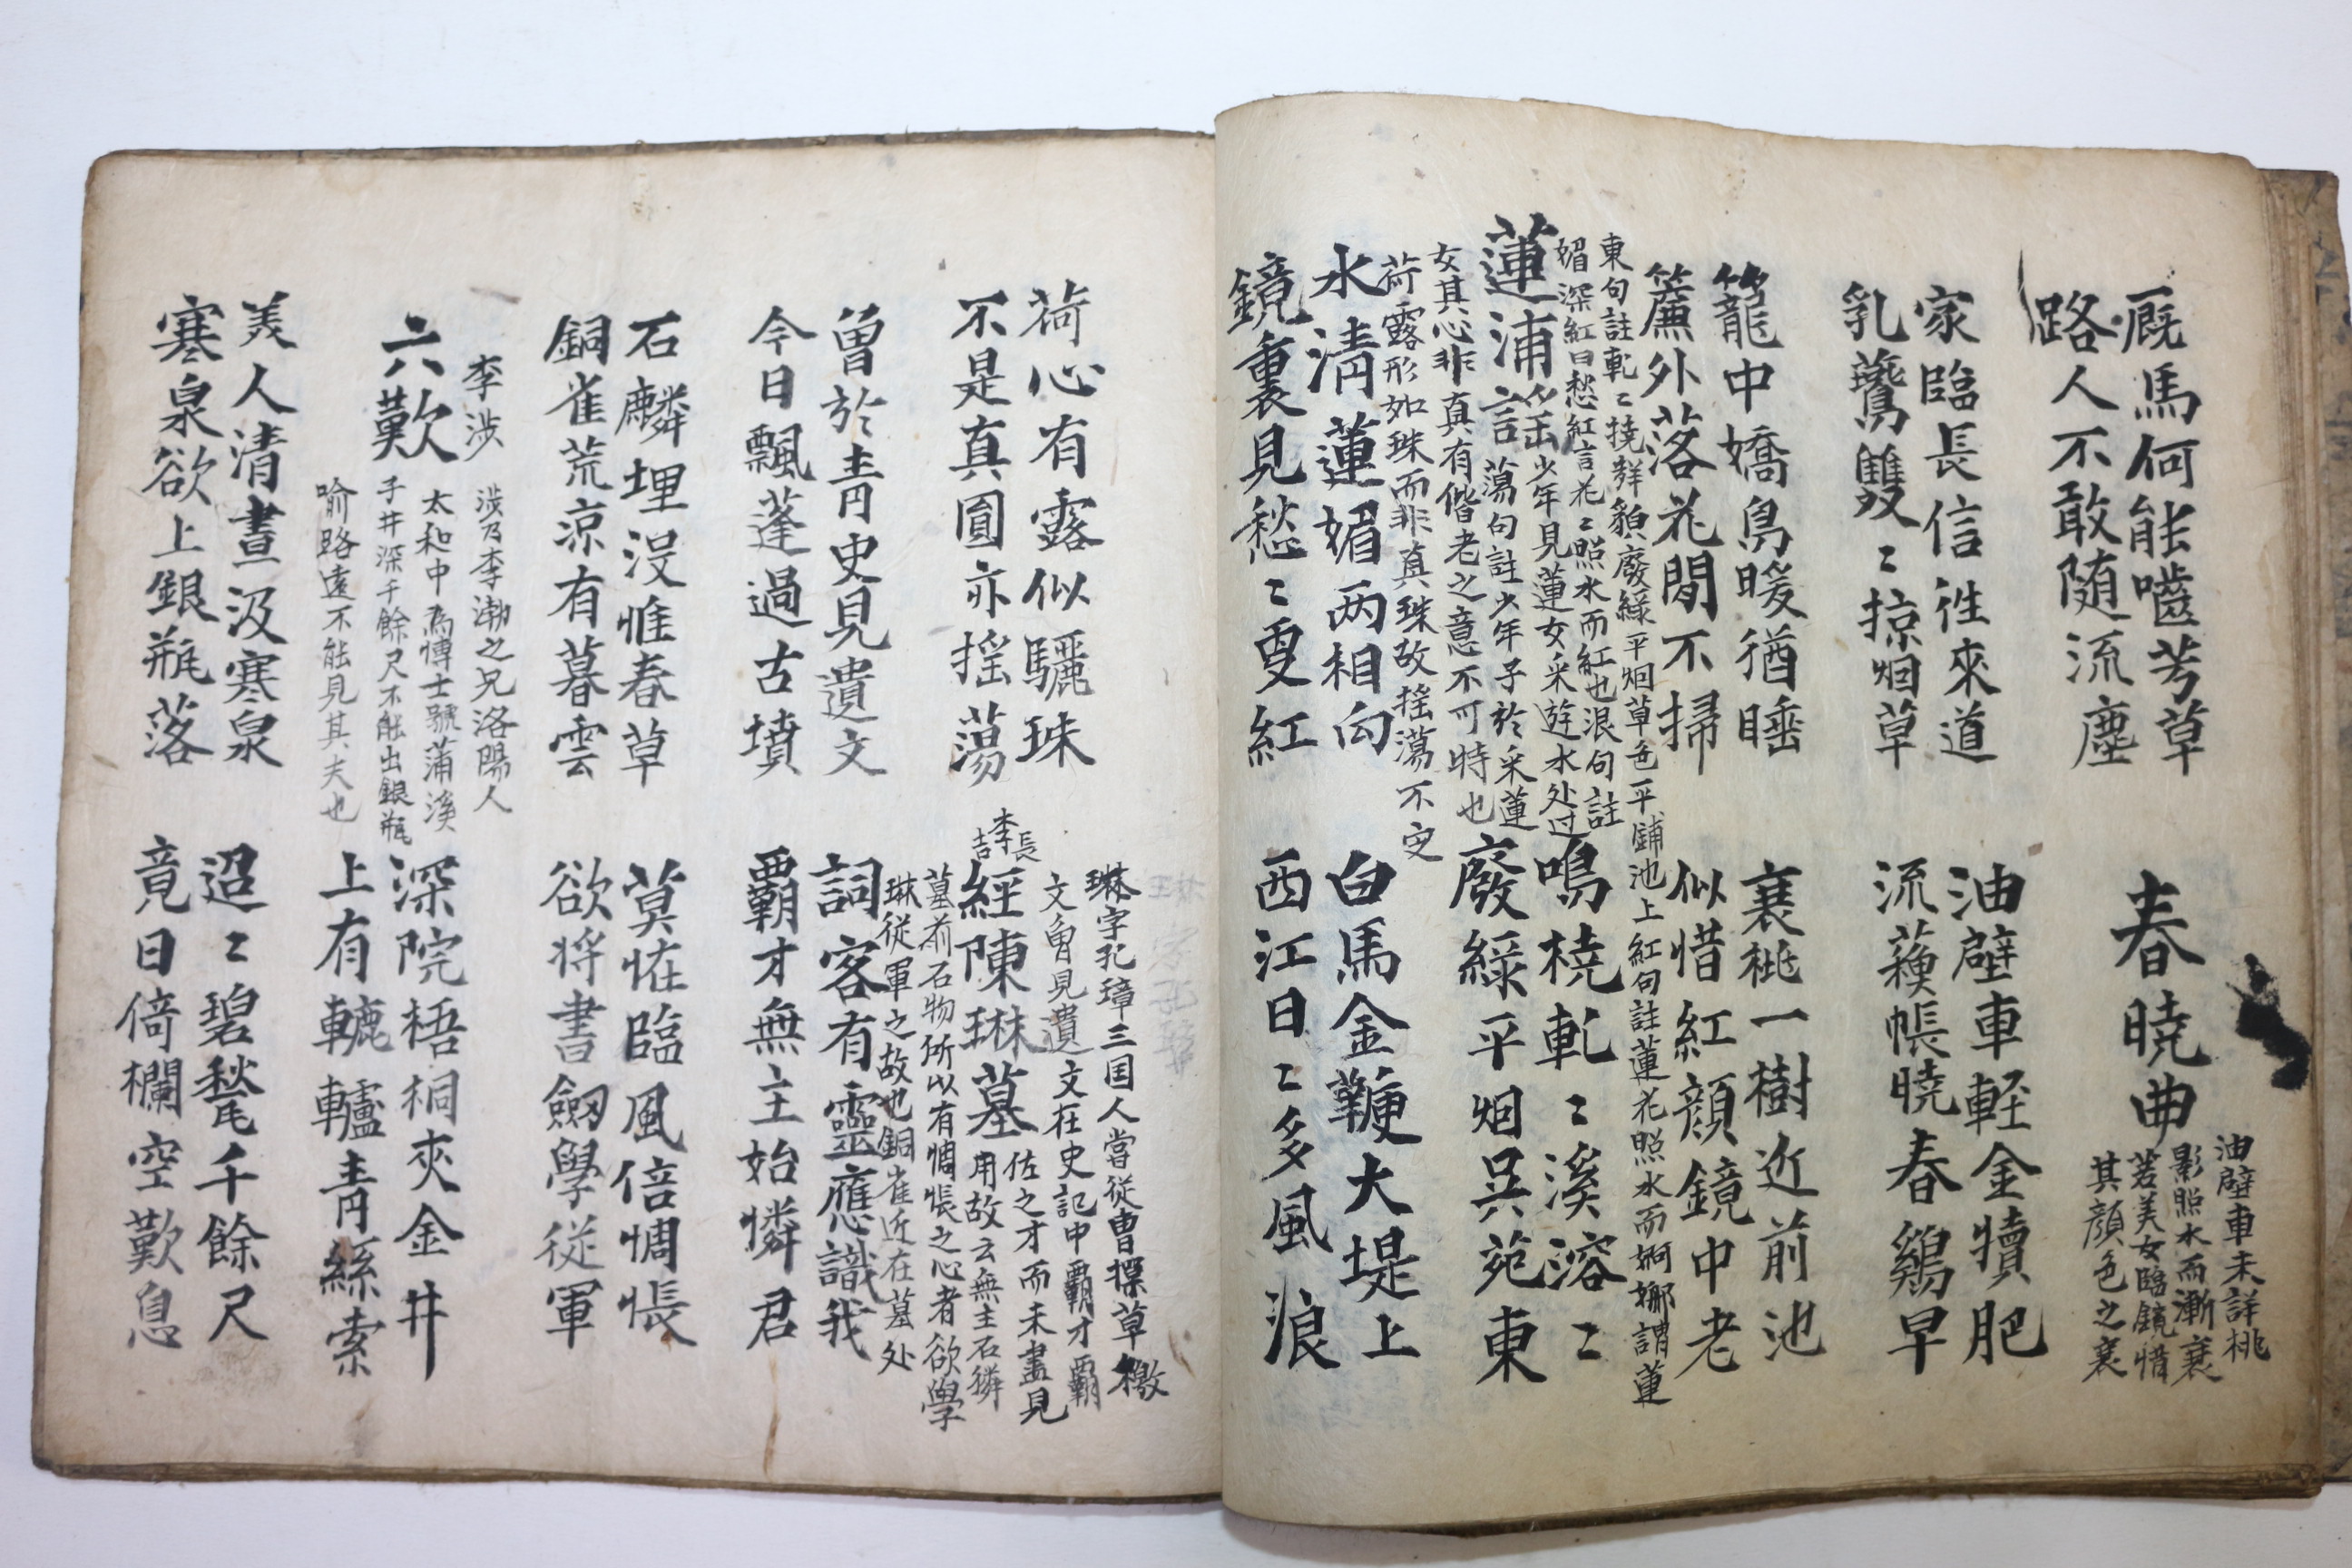 廐馬何能嚙芳草
路人不敢随流塵
春曉曲
油壁車未詳桃
影照水而漸衰
若美女臨鏡惜
其顔色之衰
家臨長信往來道
乳鷰雙〻掠烟草
油壁車輕金犢肥
流蘇帳曉春鷄早
籠中嬌鳥暖猶睡
簾外落花閒不掃
衰桃一樹近前池
似惜紅顔鏡中老
蓮浦謠
東句註軋〻撓貌廢綠平烟草色一平鋪池上紅句註蓮花照水而婀娜謂蓮
媚深紅曰愁紅言花〻照水而紅也浪句註
少年見蓮女采逰水处过
蕩句註少年子於采蓮
女其心非真有偕老之意不可時也
荷露形如珠而非真珠故揺蕩不定
鳴橈軋〻溪溶〻
廢綠平烟吳苑東
水淸蓮媚两相向
鏡裏見愁〻更紅
白馬金鞭大堤上
西江日〻多風浪
荷心有露似驪珠
不是真圓亦揺蕩
李長吉
經陳琳墓
琳字孔璋三国人嘗從曹操草檄
文曾見遺文在史記中覇才覇
佐之才而未盡見
用故云無主石獜
墓前石物所以有惆悵之心者欲學
琳從軍之故也銅雀近在墓处
曾於靑史見遺文
今日飄蓬過古墳
詞客有靈應識我
覇才無主始憐君
石麟埋沒惟春草
銅雀荒凉有暮雲
莫怪臨風倍惆悵
欲將書劒學從軍
李涉
六歎
涉乃李渤之兄洛陽人
太和中為博士號蒲溪
子井深千餘尺不能出銀瓶
喻路遠不能見其夫也
深院梧桐夾金井
上有轆轤靑絲索
美人清晝汲寒泉
寒泉欲上銀瓶落
迢〻碧甃千餘尺
竟日倚欄空歎息